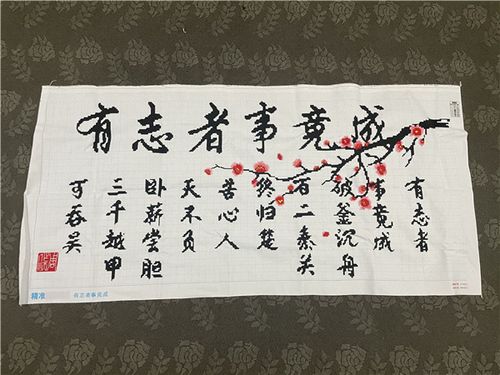 有志者事竟成
有志者
事竟成
破釜沉舟
百二秦关
终归楚
苦心人
天不负
卧薪尝胆
三千越甲
可吞吴
精准 有志者事竟成